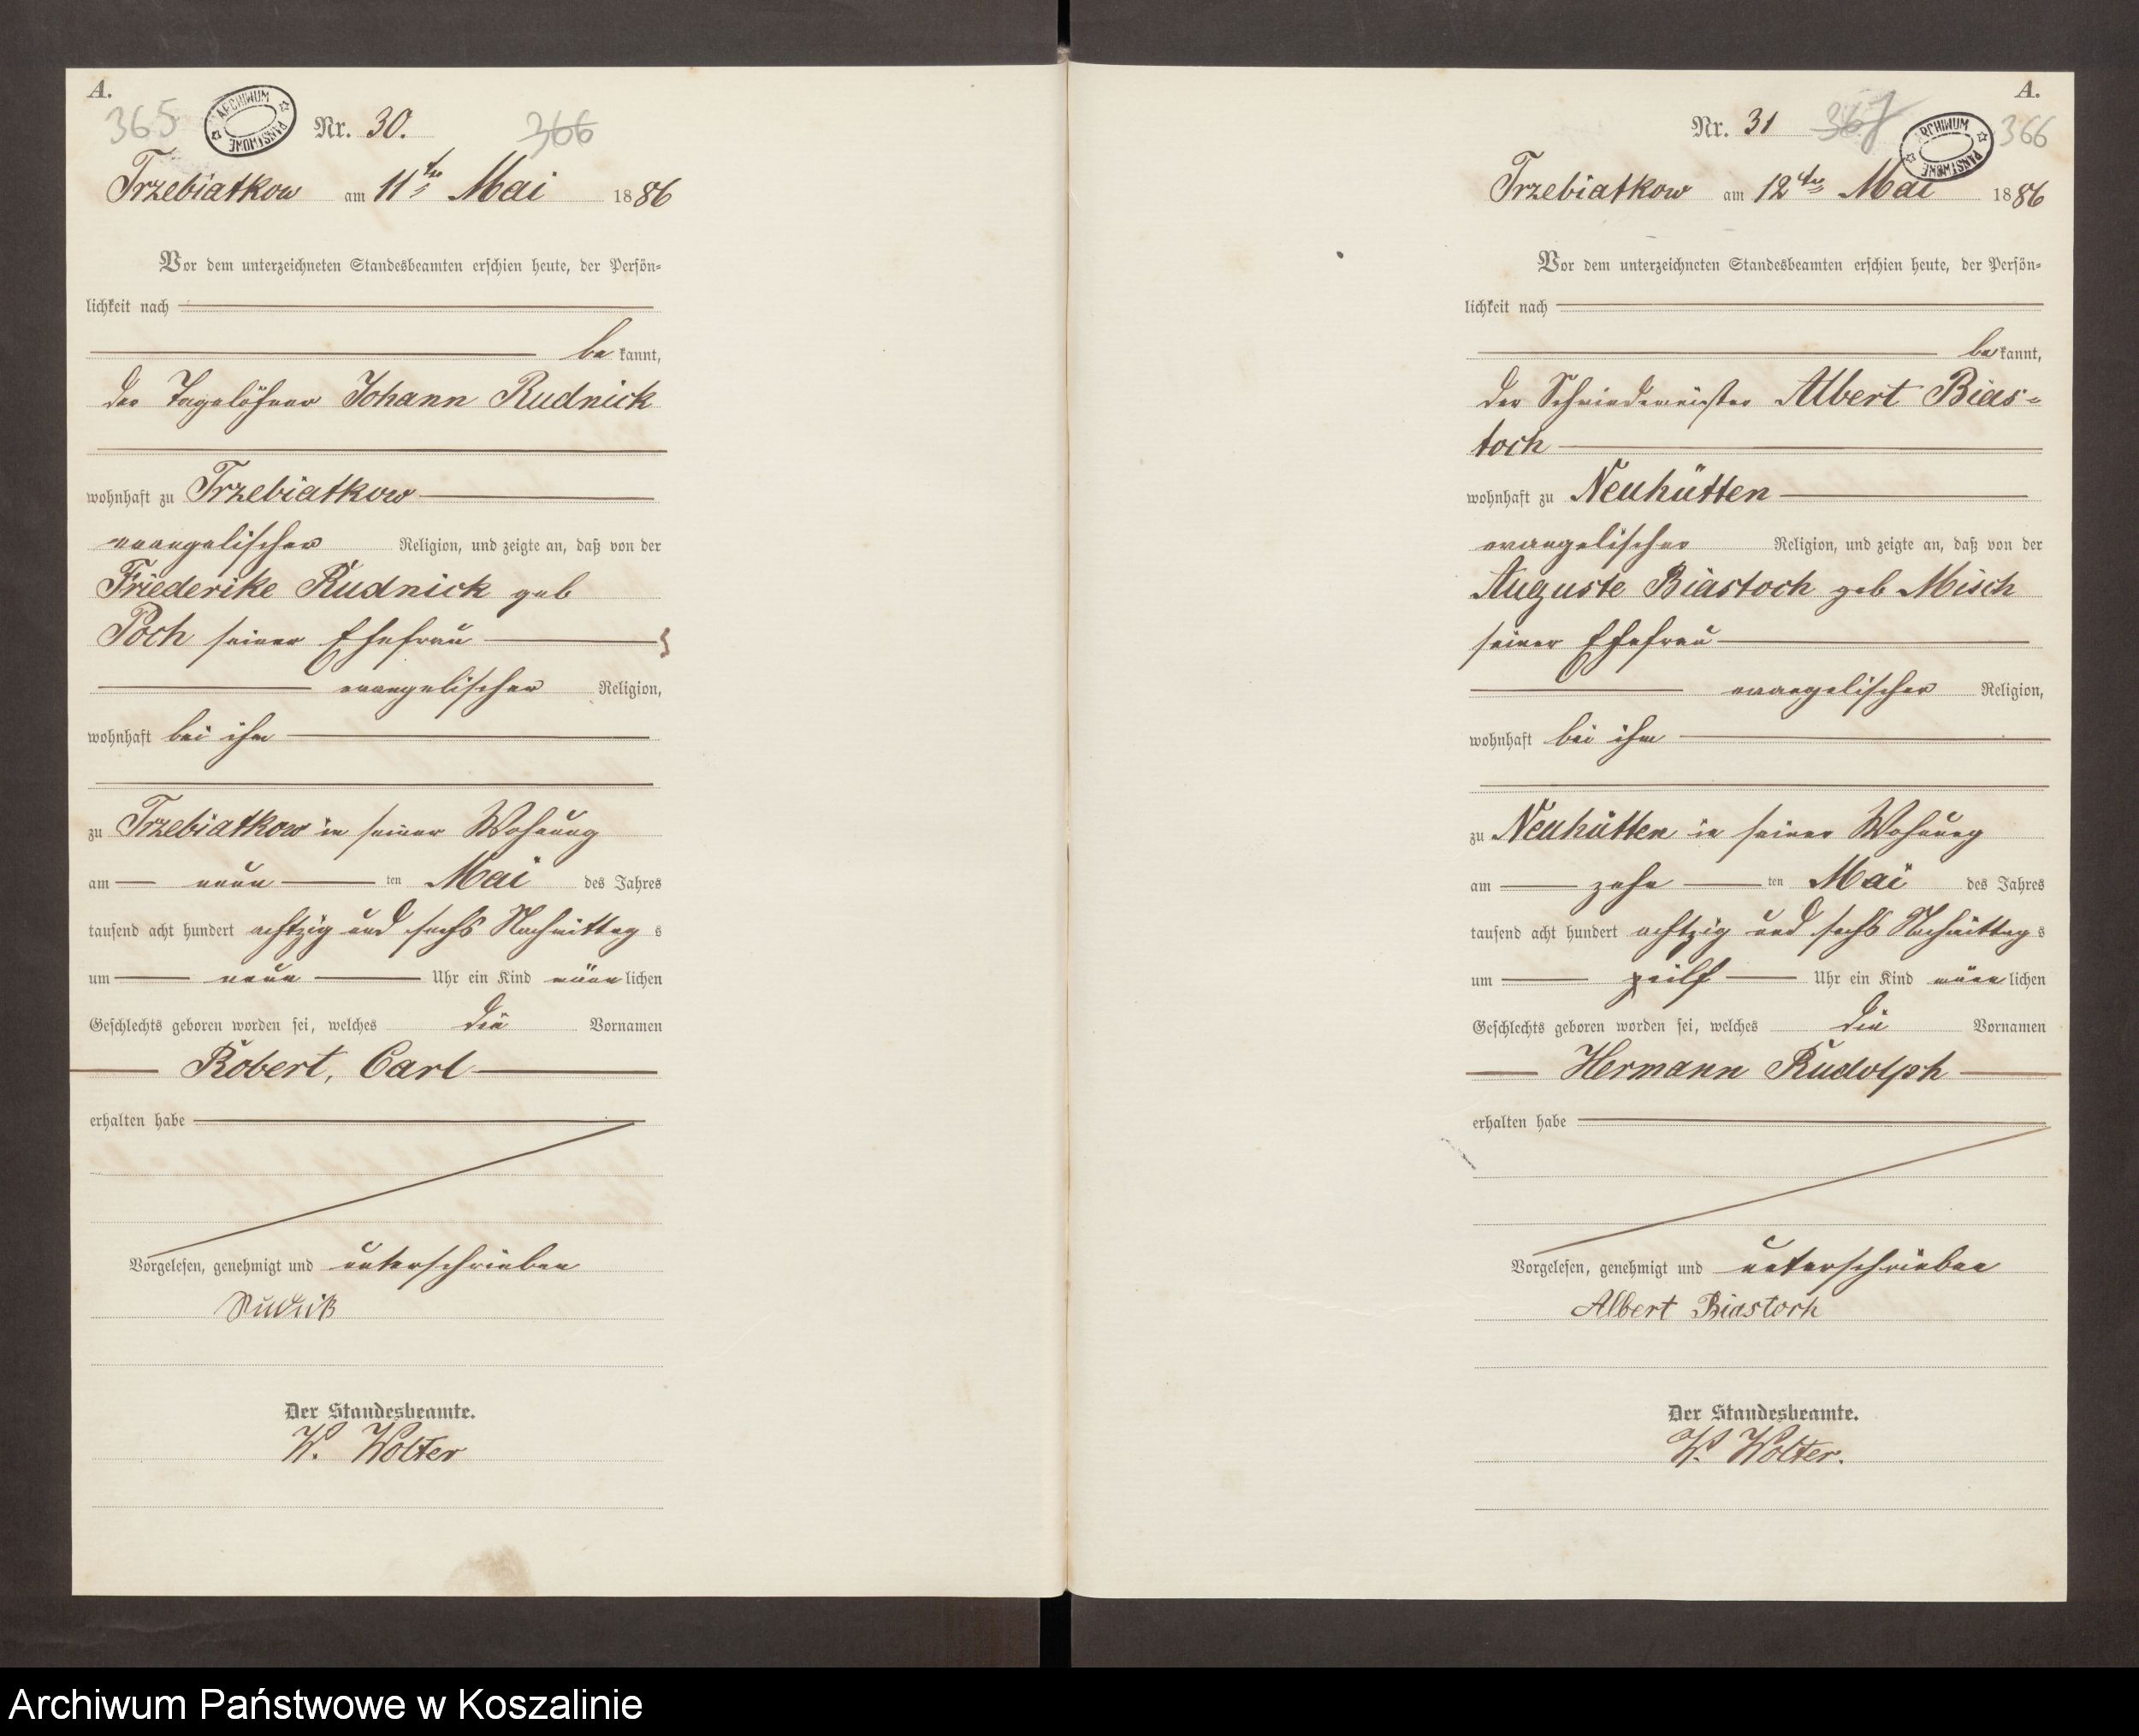 A.
365
ARCHIWUM PAŃSTWOWE
Nr. 30.
366
Trzebiatkow am 11ten Mai 1886
Vor dem unterzeichneten Standesbeamten erschien heute, der Persön-
lichkeit nach
be kannt,
der Tagelöhner Johann Rudnick
wohnhaft zu Trzebiatkow
evangelischer Religion, und zeigte an, daß von der
Friederike Rudnick geb
Poch seiner Ehefrau
evangelischer Religion,
wohnhaft bei ihm
zu Trzebiatkow in seiner Wohnung
am neun ten Mai des Jahres
tausend acht hundert achtzig und sechs Nachmittag s
um neun Uhr ein Kind männ lichen
Geschlechts geboren worden sei, welches die Vornamen
Robert, Carl
erhalten habe
Vorgelesen, genehmigt und unterschrieben
Rudnik
Der Standesbeamte.
W. Wolter
A.
Nr. 31
367
ARCHIWUM PAŃSTWOWE
366
Trzebiatkow am 12ten Mai 1886
Vor dem unterzeichneten Standesbeamten erschien heute, der Persön-
lichkeit nach
be kannt,
der Schmiedemeister Albert Bias-
toch
wohnhaft zu Neuhütten
evangelischer Religion, und zeigte an, daß von der
Auguste Biastoch geb Misch
seiner Ehefrau
evangelischer Religion,
wohnhaft bei ihm
zu Neuhütten in seiner Wohnung
am zehn ten Mai des Jahres
tausend acht hundert achtzig und sechs Nachmittag s
um Uhr ein Kind männ lichen
Geschlechts geboren worden sei, welches die Vornamen
Hermann Rudolph
erhalten habe
Vorgelesen, genehmigt und unterschrieben
Albert Biastoch
Der Standesbeamte.
W. Wolter.
Archiwum Państwowe w Koszalinie